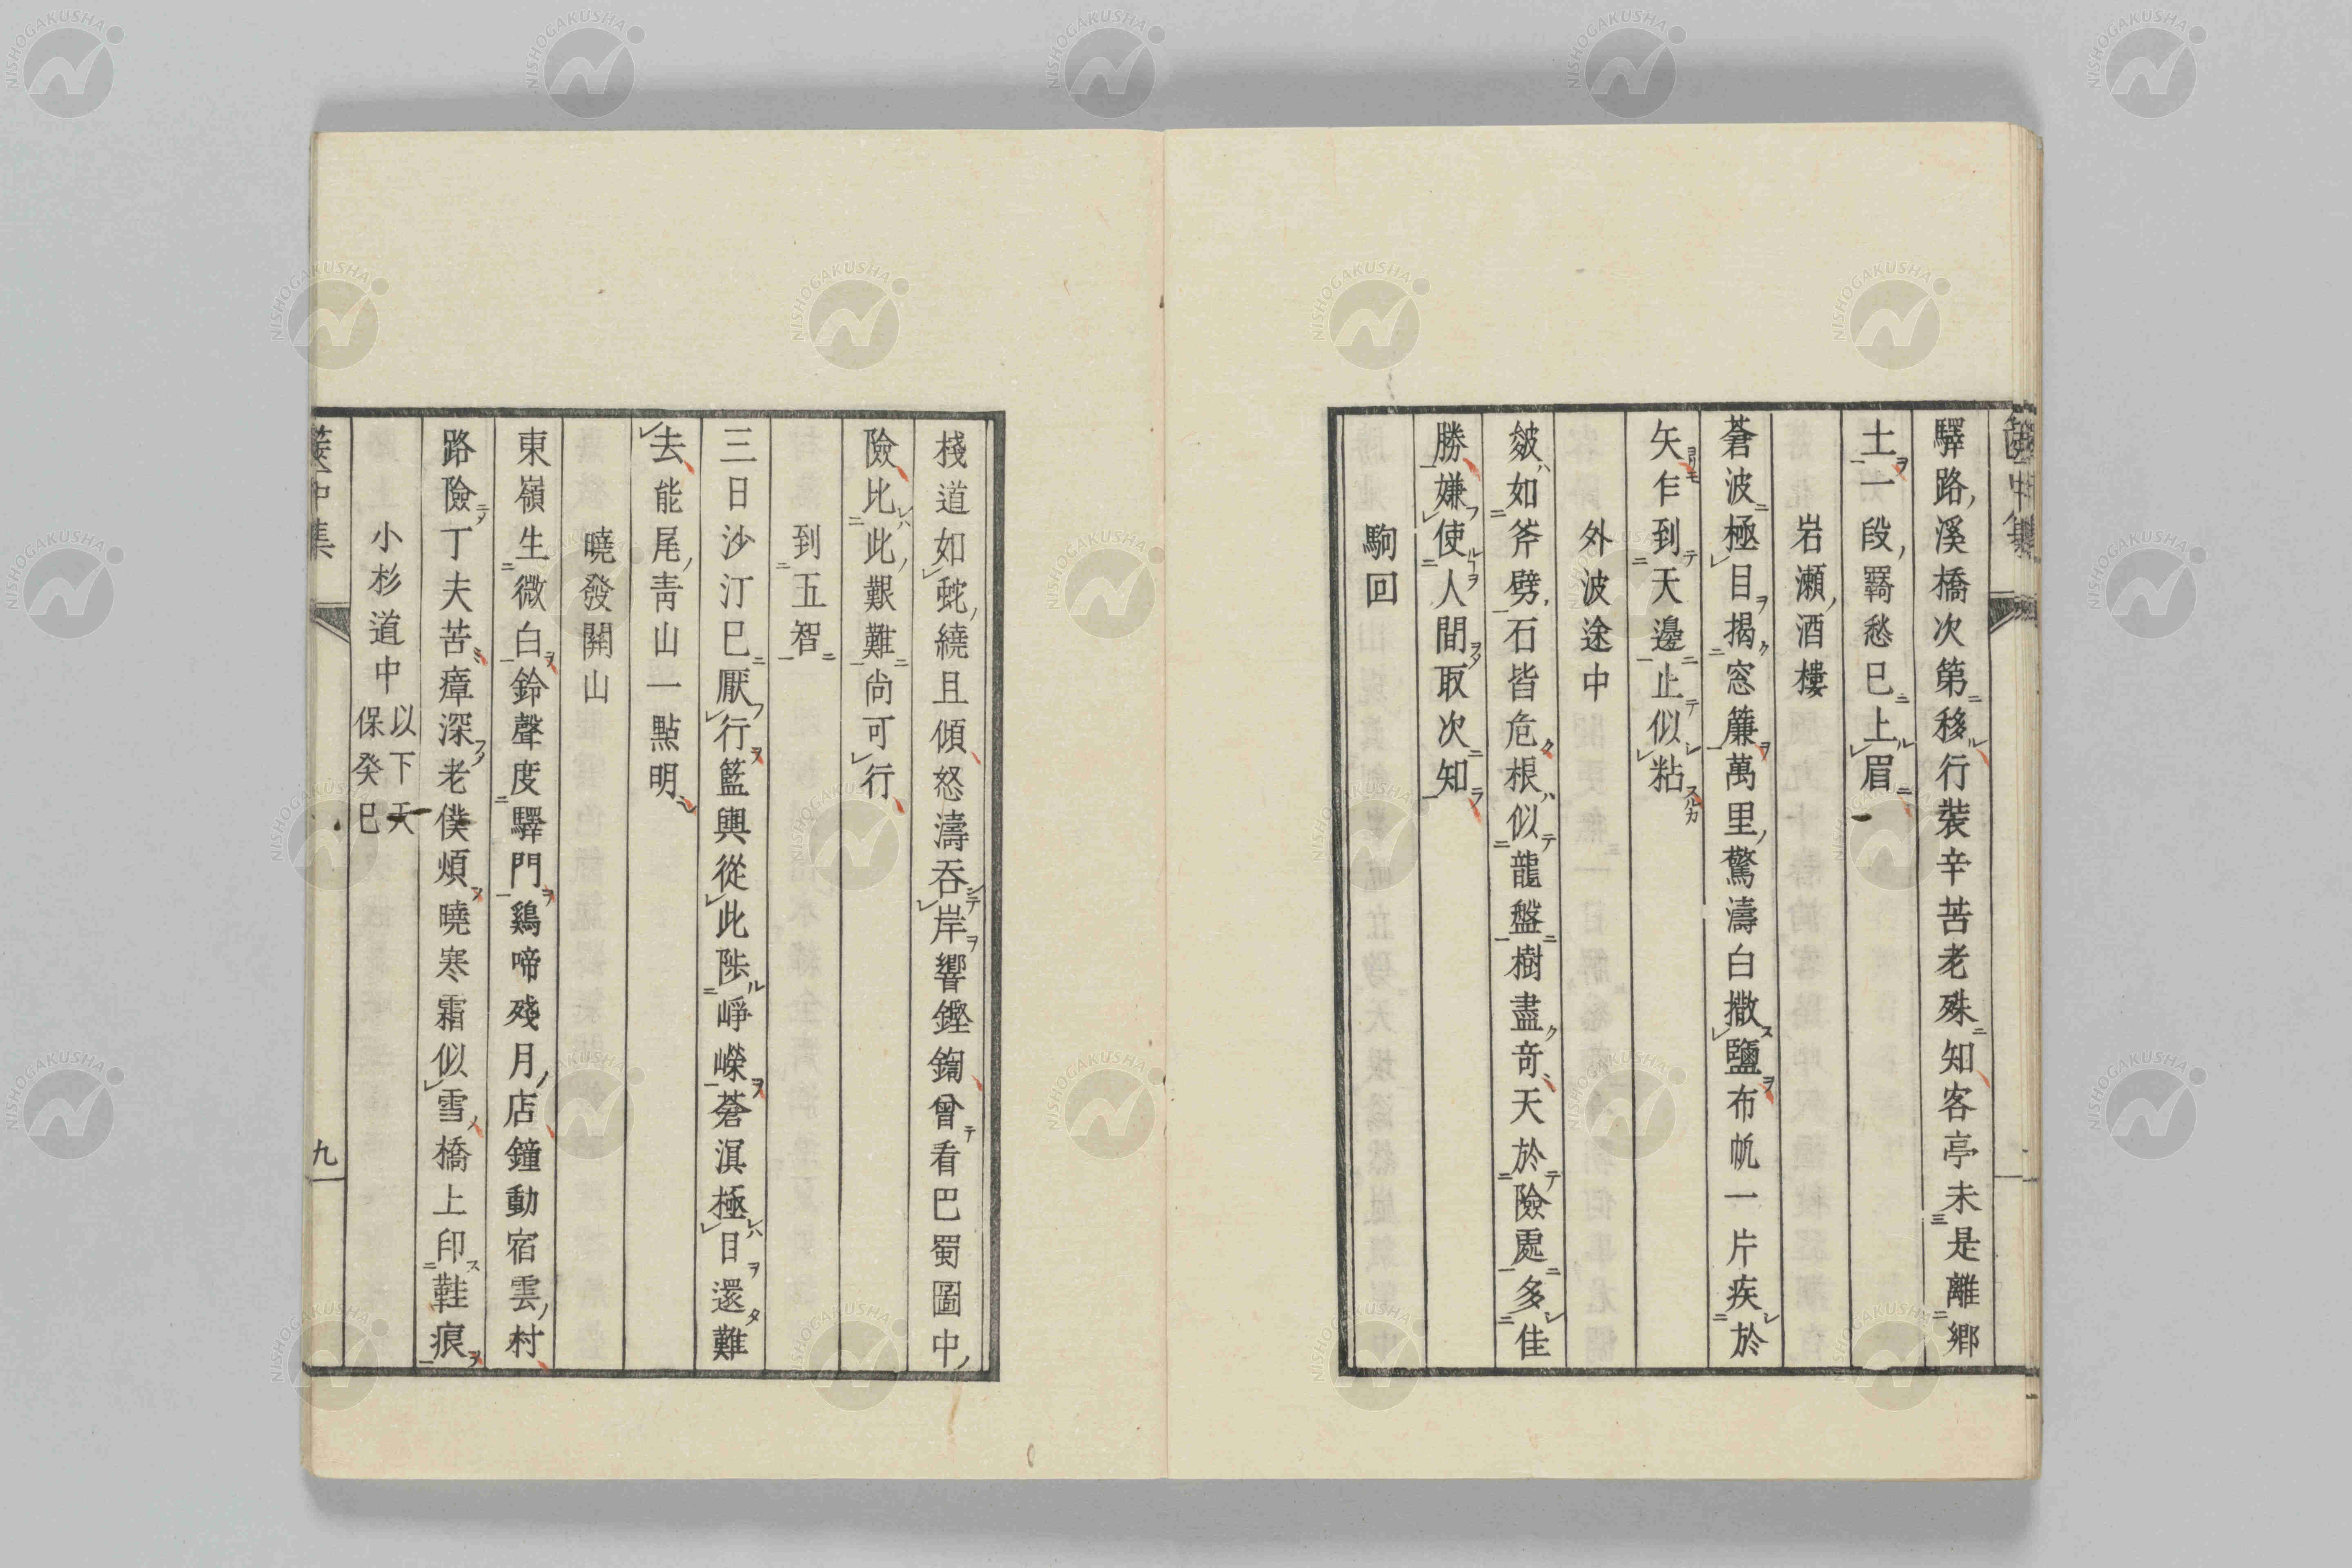 驛路溪橋次第移行裝辛苦老殊知客亭未是離鄉
土一段羇愁已上眉
岩瀬酒樓
蒼波極目揭窓簾萬里驚濤白撒鹽布帆一片疾於
矢乍到天邊止似粘
外波途中
皴如斧劈石皆危根似龍盤樹盡奇天於險處多佳
勝嫌使人間取次知
駒回
棧道如蛇繞且傾怒濤吞岸響鏗鍧曾看巴蜀圖中
險比此艱難尚可行
到五智
三日沙汀已厭行籃輿從此陟崢嶸蒼溟極目還難
去能尾靑山一點明
曉發關山
東嶺生微白鈴聲度驛門鷄啼殘月店鐘動宿雲村
路險丁夫苦瘴深老僕煩曉寒霜似雪橋上印鞋痕
小杉道中 以下天保癸巳
中集
九
NISHOGAKUSHA